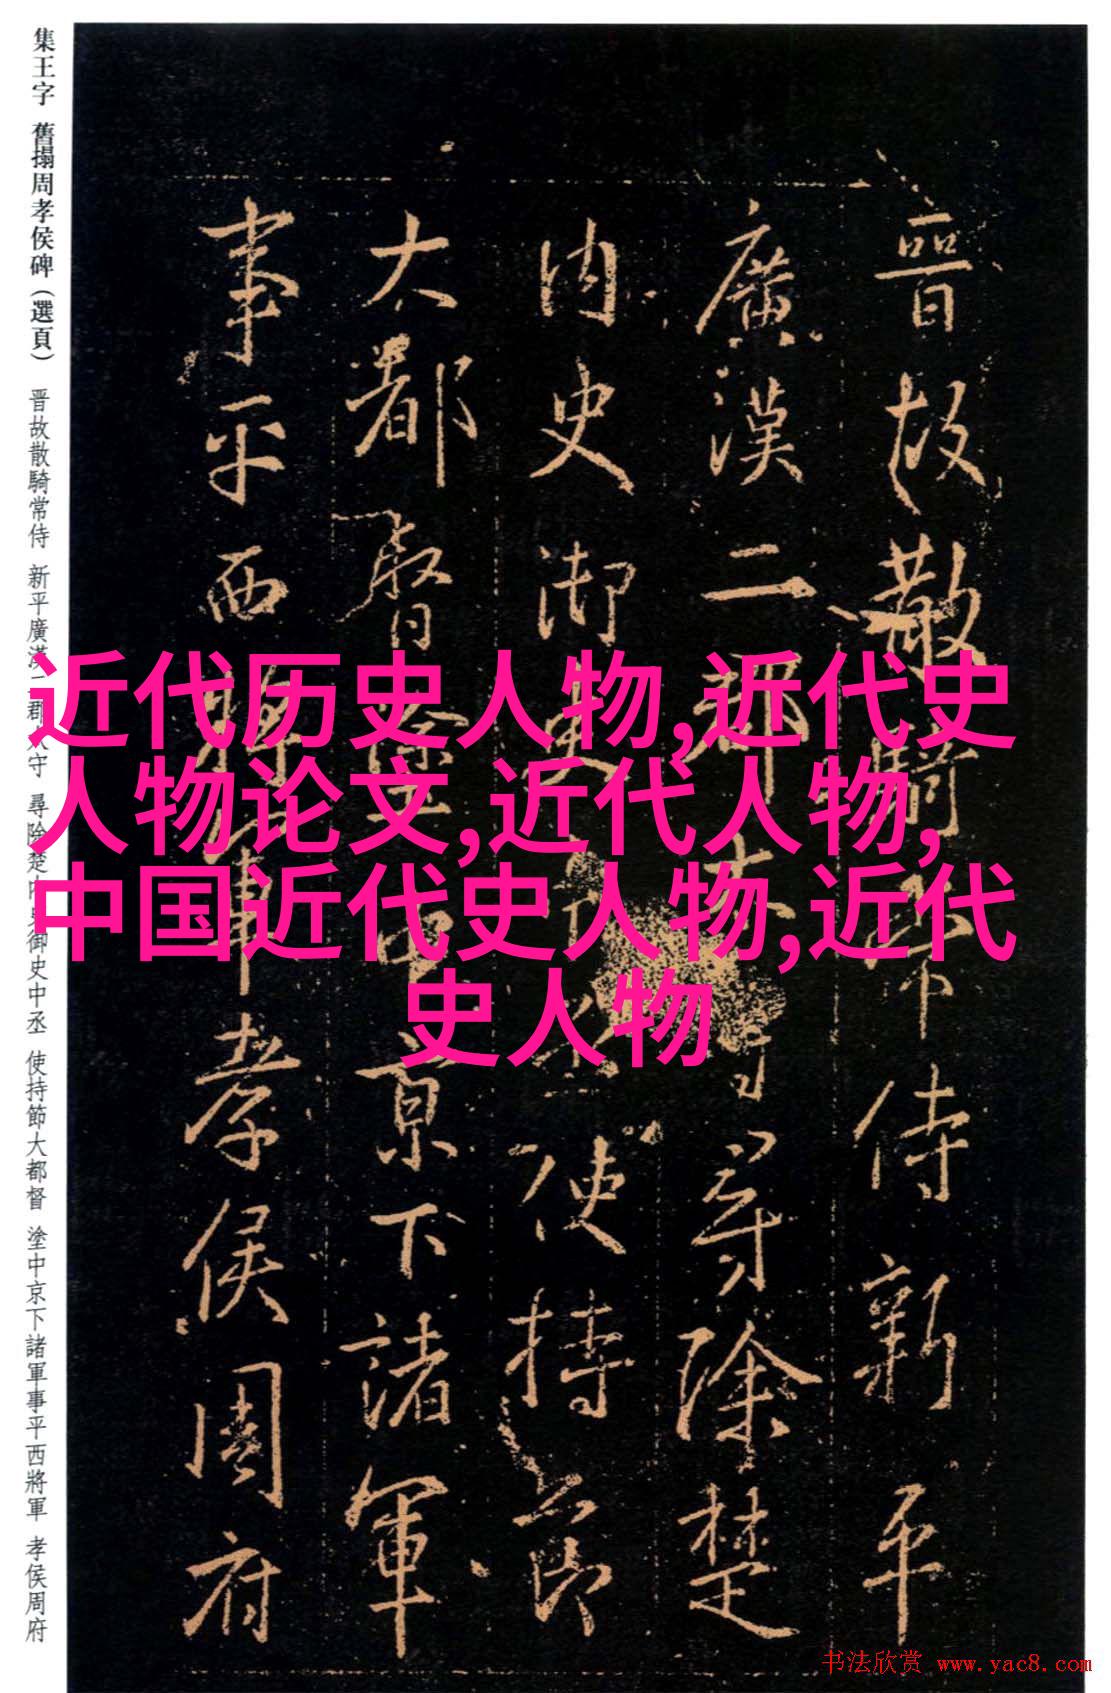 集王字 舊搨周孝侯碑（選頁） 晋故散騎常侍 新平廣漢二郡太守 尋除楚内史御史中丞 使持節大都督 塗中京下諸軍事平西將軍 孝侯周府
晉故散騎常侍新平
廣漢二郡太守尋除楚
内史御史中丞使持節
大都督塗中京下諸軍
事平西將軍孝侯周府
近代历史人物,近代史
人物论文,近代人物,
中国近代史人物,近代
史人物
书法欣赏 www.yac8.com